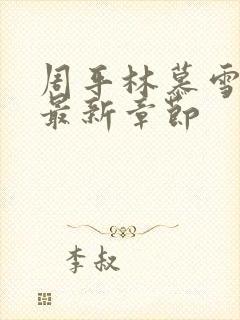 周平林慕雪
最新章节
李叔